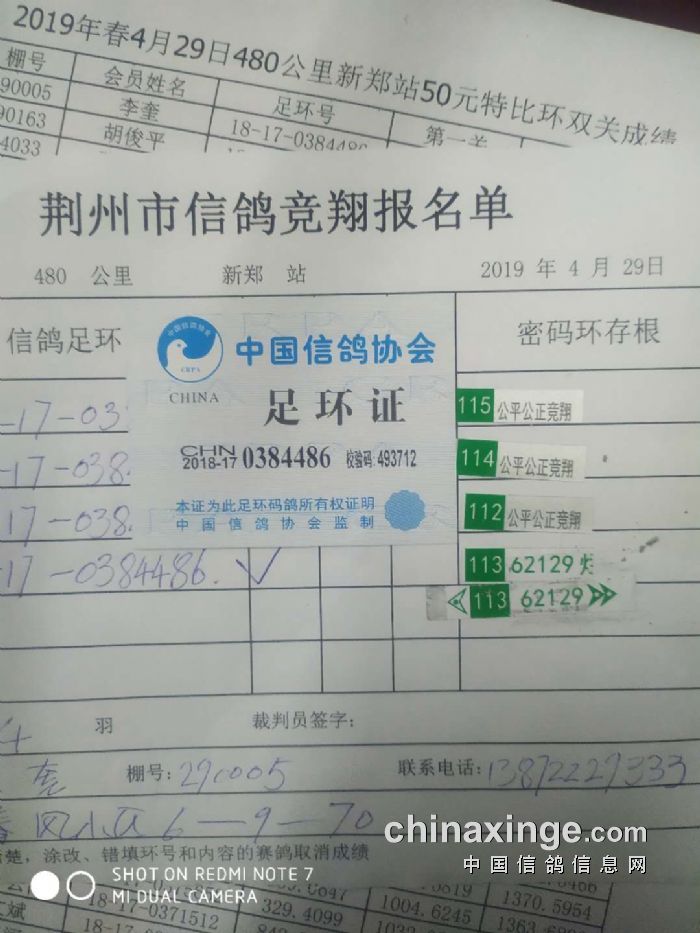 2019年春4月29日480公里新郑站50元特比环双关成绩
棚号 会员姓名 足环号 第一关
90005 李奎 18-17-0384486
90163 胡俊平
4033
荆州市信鸽竞翔报名单
480 公里 新郑 站 2019 年 4 月 29日
信鸽足环 密码环存根
中国信鸽协会
CRPA
CHINA
足环证
CHN
2018-17 0384486 校验码:493712
本证为此足环码鸽所有权证明
中国信鸽协会监制
-17-03 115 公平公正竞翔
-17-038 114 公平公正竞翔
17-038 112 公平公正竞翔
17-0384486. ✓ 113 62129
113 62129
羽 裁判员签字:
奎 棚号:290005 联系电话:13872229333
6-9-70
楚，涂改、错填环号和内容的赛鸽取消成绩
chinaxinge.com
中国信鸽信息网
SHOT ON REDMI NOTE 7
MI DUAL CAMERA
1370.5954
斌 18-17-0371512 329.4099 1004.6245